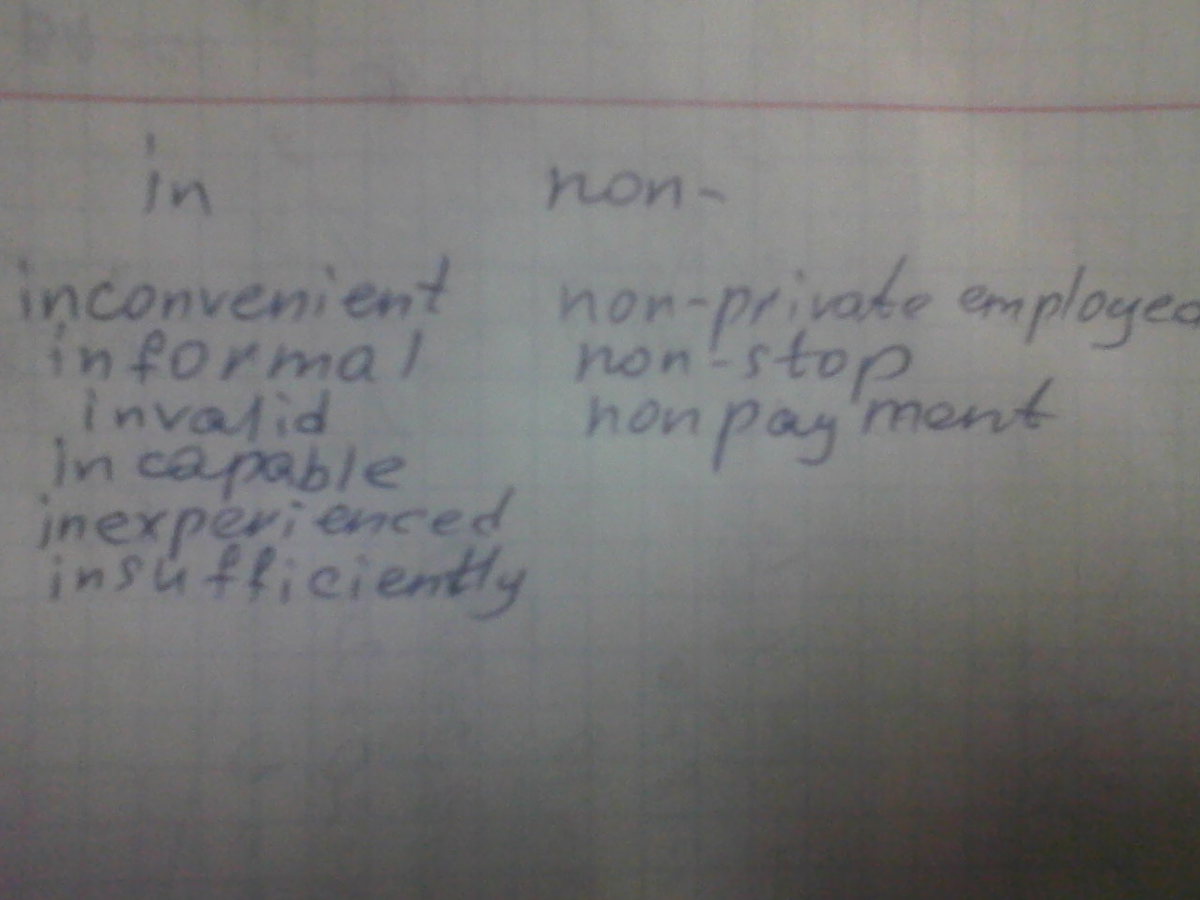 in
inconvenient
informal
invalid
incapable
inexperienced
insufficiently
non-
non-private employed
non-stop
non payment